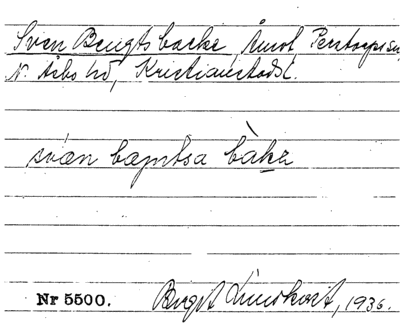 Sven Bengts backe, Åmot Perstorps sn,
N. Åsbo hd, Kristianstads l.
svæn bæŋtsa bàkə
Nr 5500. Birgit Lindkvist, 1936.